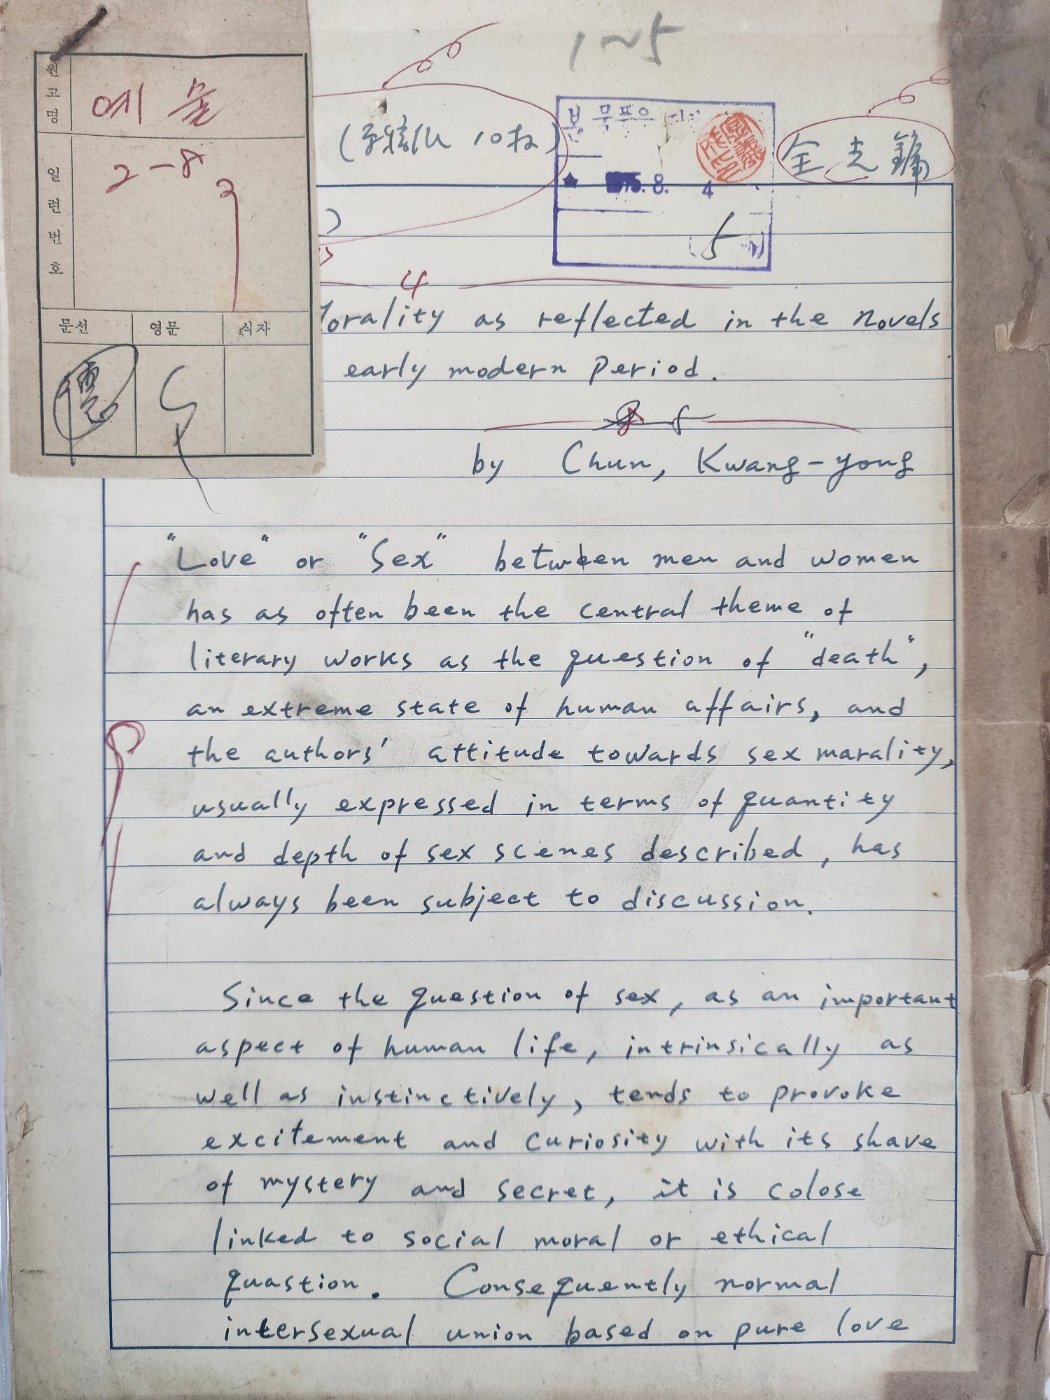 1~5
원고명 예 물
일련번호 2-8
문선 영문 식자
10매)
전광용
8. 4
(5
4
orality as reflected in the novels
early modern Period.
8
by Chun, Kwang-yong
"Love" or "Sex" between men and women
has as often been the central theme of
literary works as the question of "death",
an extreme state of human affairs, and
the authors' attitude towards sex marality,
usually expressed in terms of quantity
and depth of sex scenes described, has
always been subject to discussion.
Since the question of sex, as an important
aspect of human life, intrinsically as
well as instinctively, tends to provoke
excitement and curiosity with its shave
of mystery and secret, it is colose
linked to social moral or ethical
quastion. Consequently normal
intersexual union based on pure love